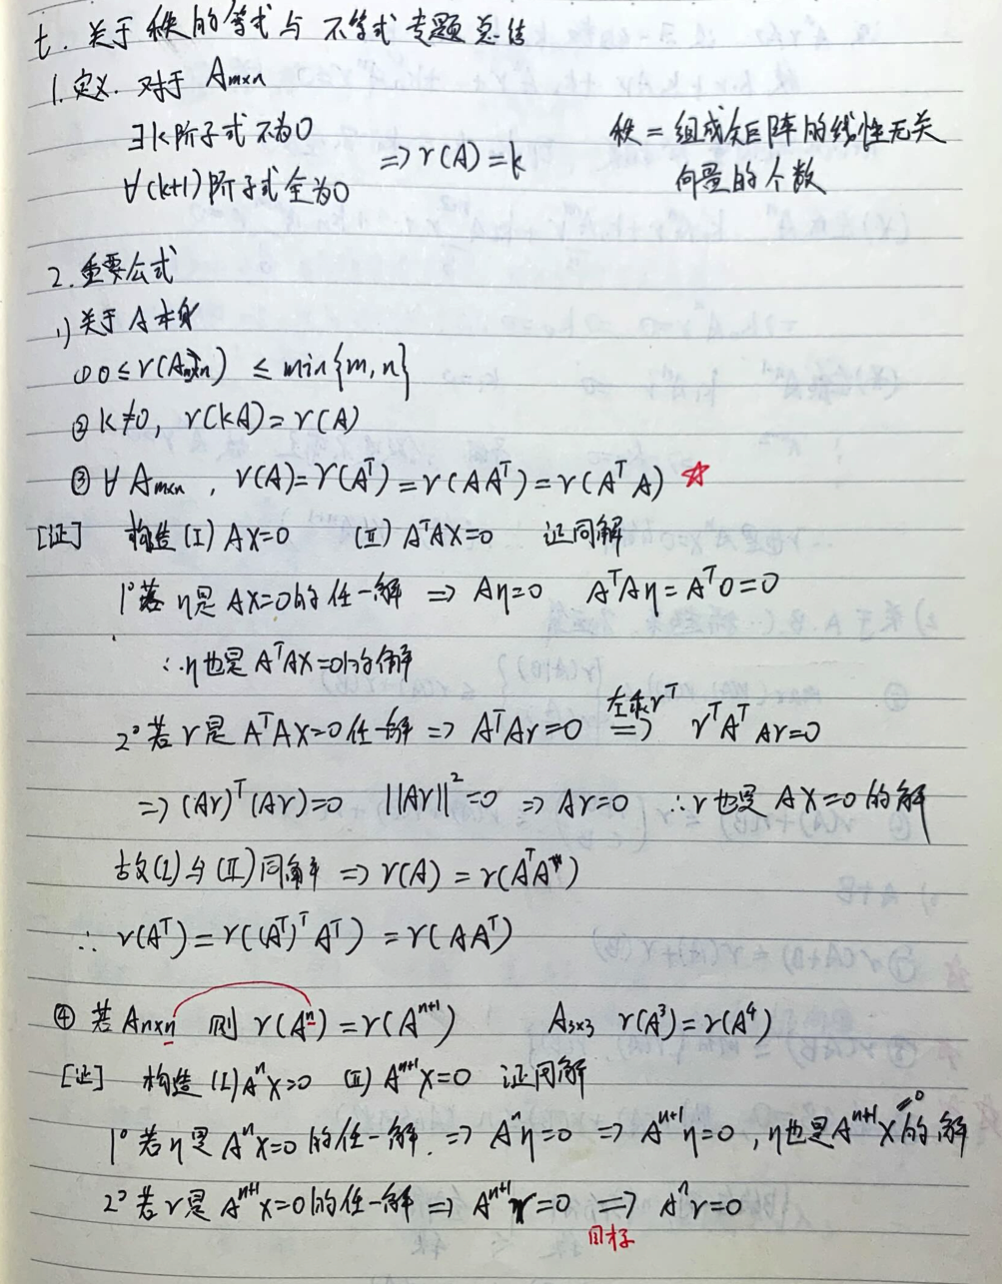 七. 关于秩的等式与不等式专题总结
1. 定义. 对于 Aₘₓₙ
∃k阶子式不为0
∀(k+1)阶子式全为0
⇒ r(A)=k
秩 = 组成矩阵的线性无关
向量的个数
2. 重要公式
1) 关于A本身
① 0≤r(Aₘₓₙ) ≤ min{m,n}
② k≠0, r(kA)=r(A)
③ ∀ Aₘₓₙ, r(A)=r(Aᵀ)=r(AAᵀ)=r(AᵀA) ☆
[证] 构造(Ⅰ) AX=0 (Ⅱ) AᵀAX=0 证同解
1° 若η是AX=0的任一解 ⇒ Aη=0 AᵀAη=Aᵀ0=0
∴η也是AᵀAX=0的解
2° 若r是AᵀAX=0任一解 ⇒ AᵀAr=0 左乘rᵀ ⇒ rᵀAᵀAr=0
⇒ (Ar)ᵀ(Ar)=0 ||Ar||²=0 ⇒ Ar=0 ∴r也是AX=0的解
故(Ⅰ)与(Ⅱ)同解 ⇒ r(A)=r(AᵀA)
∴ r(Aᵀ)=r((Aᵀ)ᵀAᵀ)=r(AAᵀ)
④ 若Aₙₓₙ 则 r(Aⁿ)=r(Aⁿ⁺¹) A₃ₓ₃ r(A³)=r(A⁴)
[证] 构造(Ⅰ)AⁿX=0 (Ⅱ) Aⁿ⁺¹X=0 证同解
1° 若η是AⁿX=0的任一解. ⇒ Aⁿη=0 ⇒ Aⁿ⁺¹η=0, η也是Aⁿ⁺¹X=0的解
2° 若r是Aⁿ⁺¹X=0的任一解 ⇒ Aⁿ⁺¹r=0 ⇒ Aⁿr=0
目标